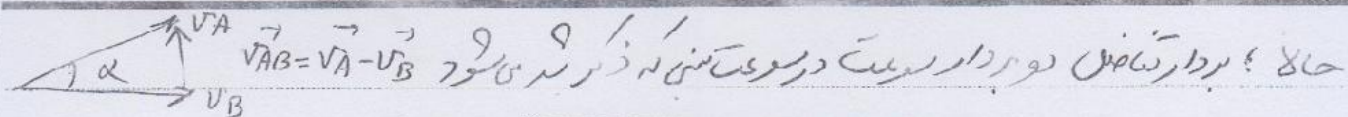 حالا ؛ بردار تفاضل دو بردار سرعت در سرعت نسبی که ذکر شد می‌شود V⃗AB = V⃗A - V⃗B
VA
α
VB